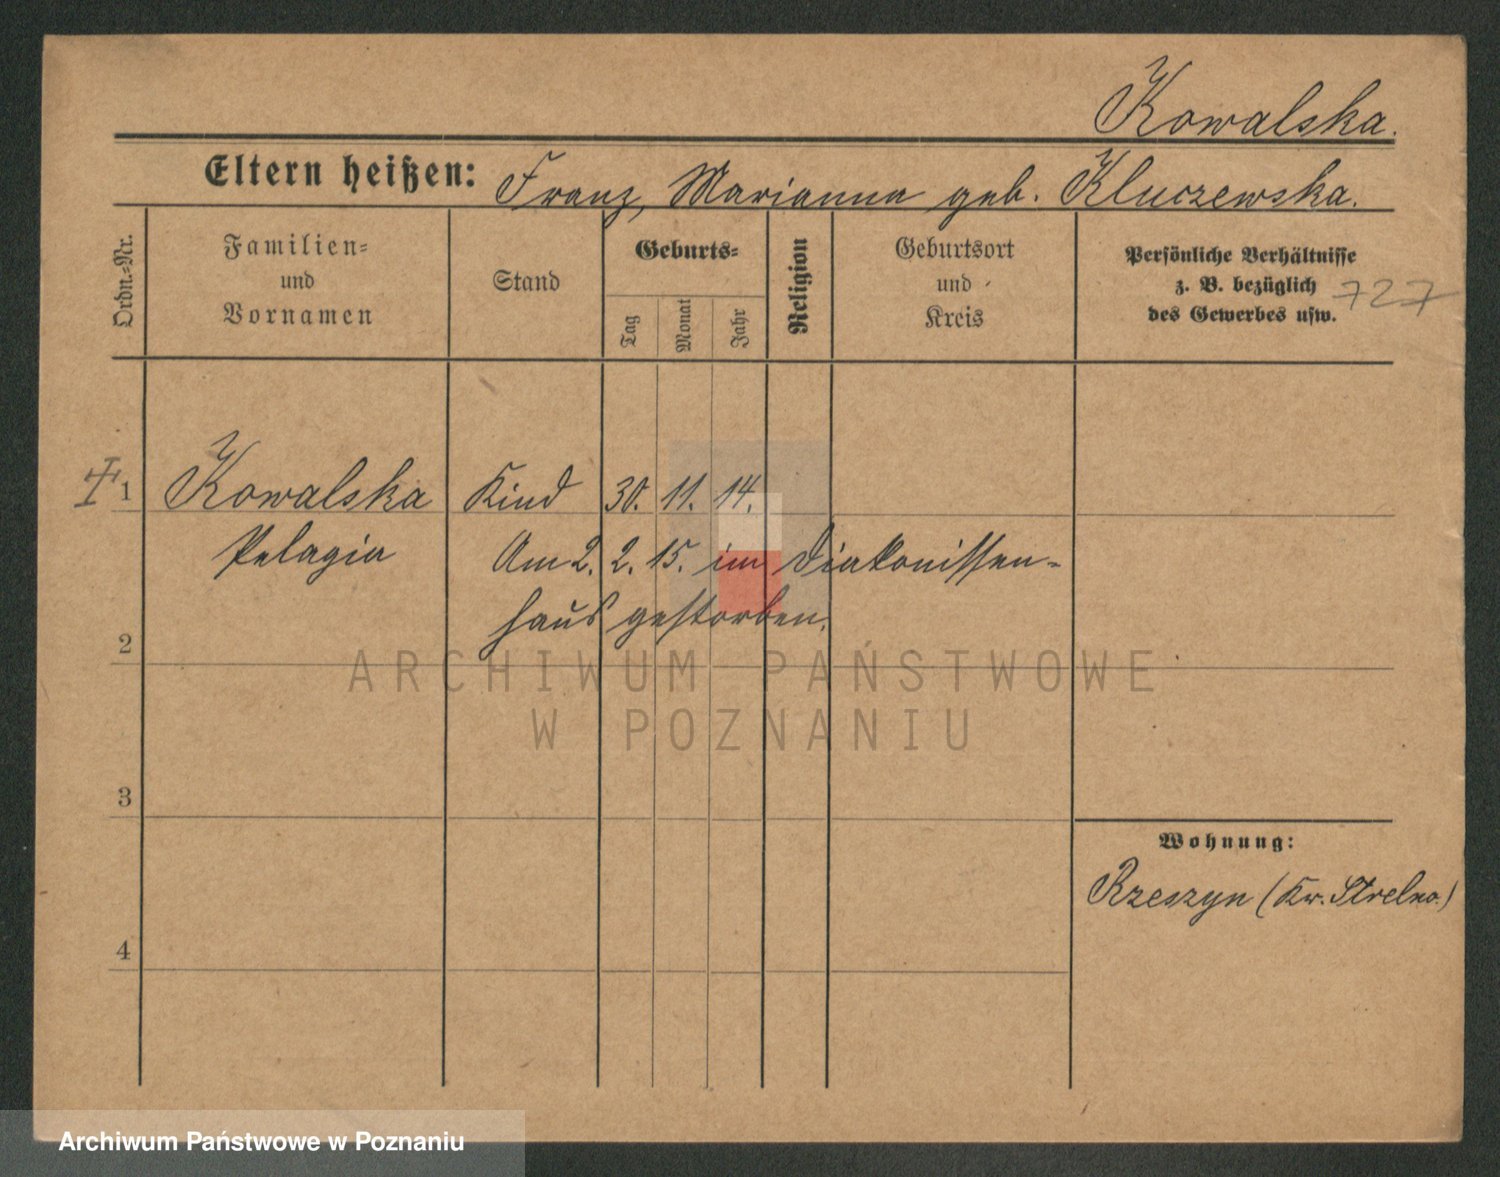 Kowalska.
Eltern heißen: Franz, Marianna geb. Kluczewska.
Ordn.-Nr.
Familien-
und
Vornamen
Stand
Geburts-
Tag
Monat
Jahr
Religion
Geburtsort
und
Kreis
Persönliche Verhältnisse
z. B. bezüglich
des Gewerbes usw.
727
1 Kowalska Kind 30. 11. 14.
Pelagia Am 2. 2. 15. im Diakonissen-
haus gestorben.
2
3
4
Wohnung:
Rzeszyn (Kr. Strelno.)
ARCHIWUM PAŃSTWOWE
W POZNANIU
Archiwum Państwowe w Poznaniu